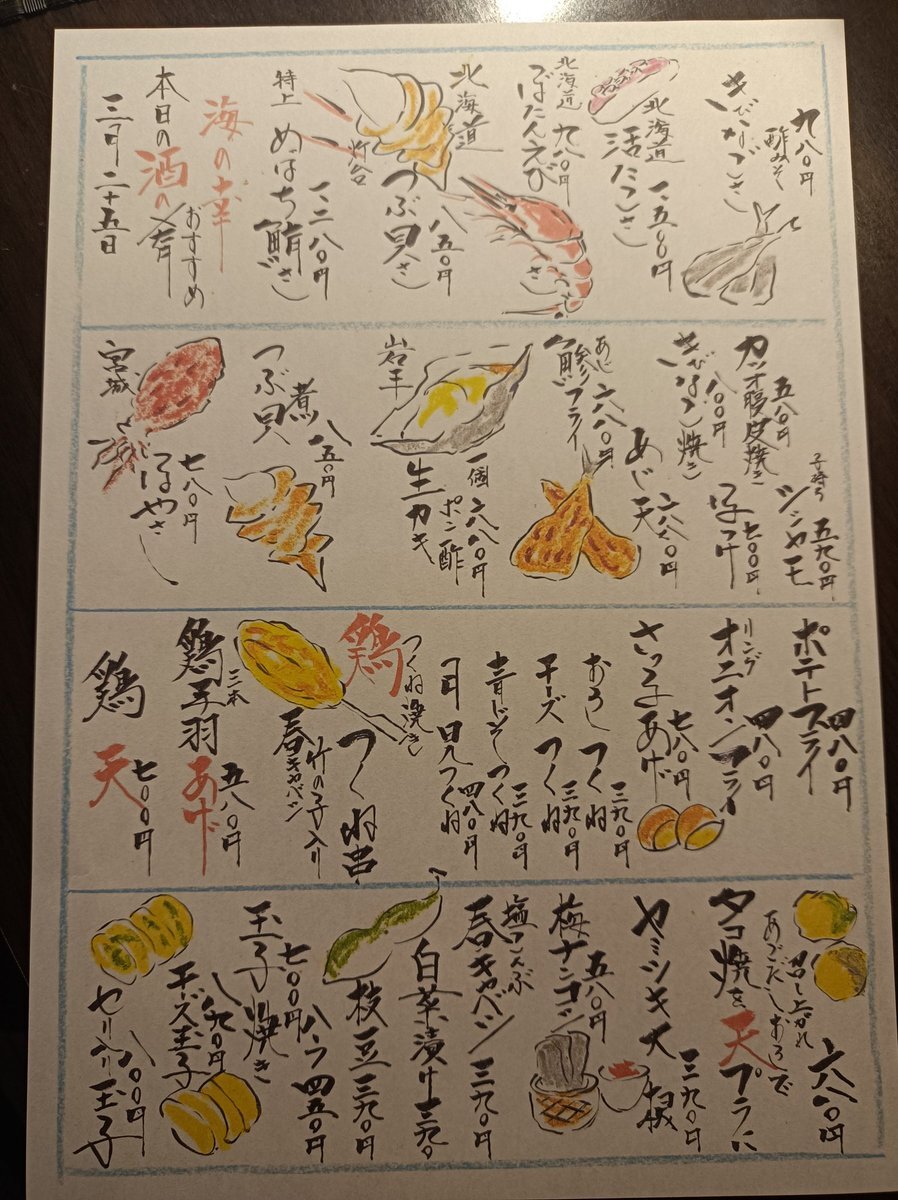 三月二十五日
本日の酒の肴
おすすめ
海の幸
特上 めばち鮪さし
一二八〇円
北海道
つぶ貝さし
八五〇円
北海道
ぼたんえび
九八〇円
北海道
活たこさし
一五〇〇円
きびなごさし
酢みそ
九八〇円
宮城
ほやさし
七八〇円
つぶ貝煮
八五〇円
岩手
生カキ
ポン酢
一個 六八〇円
あじ
鯵フライ
六八〇円
あじ天
六八〇円
きびなご焼き
八〇〇円
カツオ腹皮焼き
五八〇円
子持ち
シシャモ
五九〇円
鶏天
七〇〇円
鶏手羽あげ
三本
五八〇円
鶏
つくね焼き
つくね串
竹の子入り
春キャベツ
月見つくね
四八〇円
青じそつくね
三九〇円
チーズつくね
三九〇円
おろしつくね
三九〇円
七八〇円
オニオンフライ
リング
四八〇円
ポテトフライ
四八〇円
セリ入り玉子
八〇〇円
チーズ玉子
八九〇円
玉子焼き
七〇〇円
ハーフ 四五〇円
枝豆 三九〇円
白菜漬け 三九〇
塩こんぶ
春キャベツ 三九〇円
五八〇円
三九〇円
タコ焼を天プラに
あごだしおろしで
召し上がれ
六八〇円